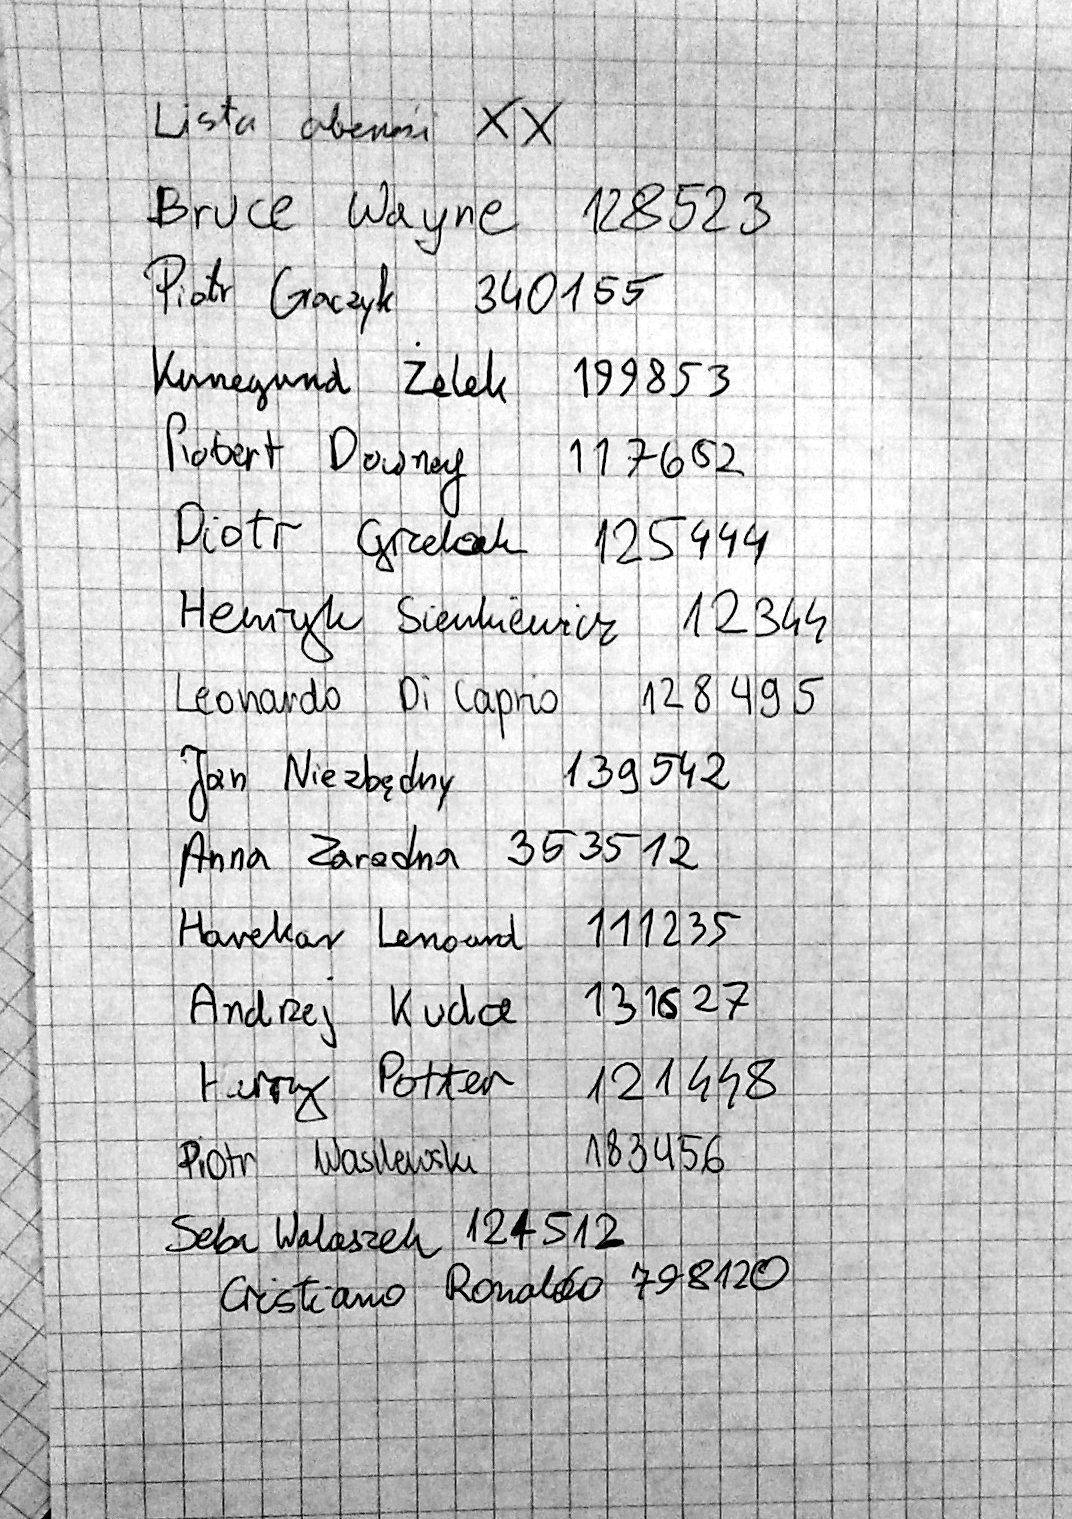 Lista obecności XX
Bruce Wayne 128523
Piotr Graczyk 340155
Kunegund Żelek 199853
Robert Downey 117652
Piotr 125444
Henryk Sienkiewicz 12344
Leonardo Di Caprio 128495
Jan Niezbędny 139542
Anna Zaradna 353512
Harekar Lenoard 111235
Andrzej 131627
Harry Potter 121448
Piotr Wasilewski 183456
Seba Walaszek 124512
Cristiano Ronaldo 798120